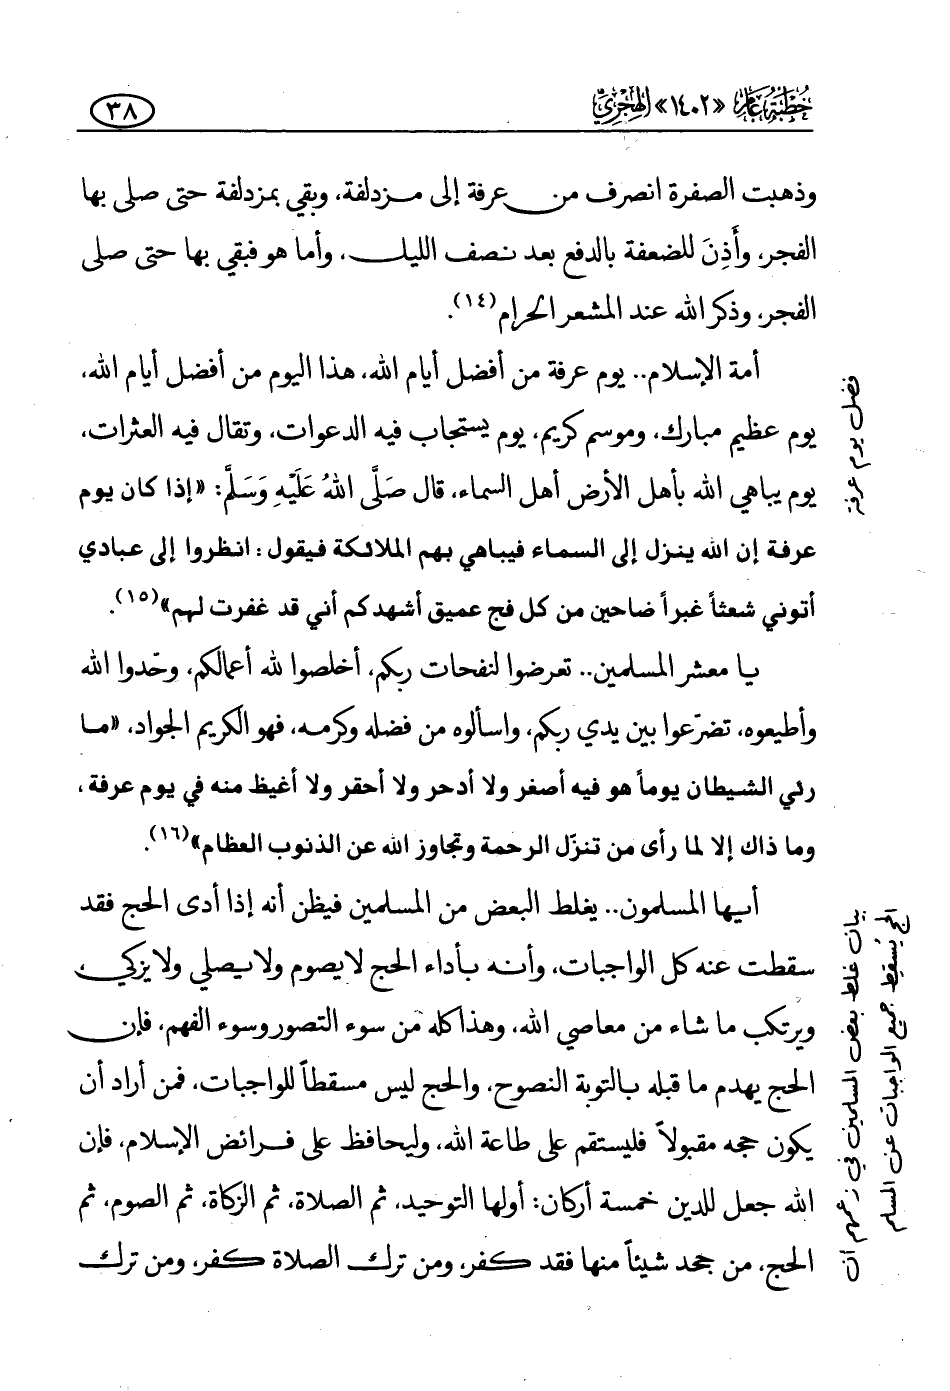 خطبة عام «١٤٠٢» الهجري
٣٨
وذهبت الصفرة انصرف من عرفة إلى مزدلفة، وبقي بمزدلفة حتى صلى بها
الفجر، وأَذِنَ للضعفة بالدفع بعد نصف الليل، وأما هو فبقي بها حتى صلى
الفجر، وذكر الله عند المشعر الحرام(١٤).
أمة الإسلام.. يوم عرفة من أفضل أيام الله، هذا اليوم من أفضل أيام الله،
يوم عظيم مبارك، وموسم كريم، يوم يستجاب فيه الدعوات، وتقال فيه العثرات،
يوم يباهي الله بأهل الأرض أهل السماء، قال صَلَّى اللهُ عَلَيْهِ وَسَلَّمَ: «إذا كان يوم
عرفة إن الله ينزل إلى السماء فيباهي بهم الملائكة فيقول: انظروا إلى عبادي
أتوني شعثاً غبراً ضاحين من كل فج عميق أشهدكم أني قد غفرت لهم»(١٥).
يا معشر المسلمين.. تعرضوا لنفحات ربكم، أخلصوا لله أعمالكم، وحّدوا الله
وأطيعوه، تضرّعوا بين يدي ربكم، واسألوه من فضله وكرمه، فهو الكريم الجواد، «ما
رئي الشيطان يوماً هو فيه أصغر ولا أدحر ولا أحقر ولا أغيظ منه في يوم عرفة،
وما ذاك إلا لما رأى من تنزّل الرحمة وتجاوز الله عن الذنوب العظام»(١٦).
أيها المسلمون.. يغلط البعض من المسلمين فيظن أنه إذا أدى الحج فقد
سقطت عنه كل الواجبات، وأنه بأداء الحج لا يصوم ولا يصلي ولا يزكي،
ويرتكب ما شاء من معاصي الله، وهذا كله من سوء التصور وسوء الفهم، فإن
الحج يهدم ما قبله بالتوبة النصوح، والحج ليس مسقطاً للواجبات، فمن أراد أن
يكون حجه مقبولاً فليستقم على طاعة الله، وليحافظ على فرائض الإسلام، فإن
الله جعل للدين خمسة أركان: أولها التوحيد، ثم الصلاة، ثم الزكاة، ثم الصوم، ثم
الحج، من جحد شيئاً منها فقد كفر، ومن ترك الصلاة كفر، ومن ترك
فضل يوم عرفة
بيان غلط بعض المسلمين في زعمهم أن
الحج يُسقِط جميع الواجبات عن المسلم